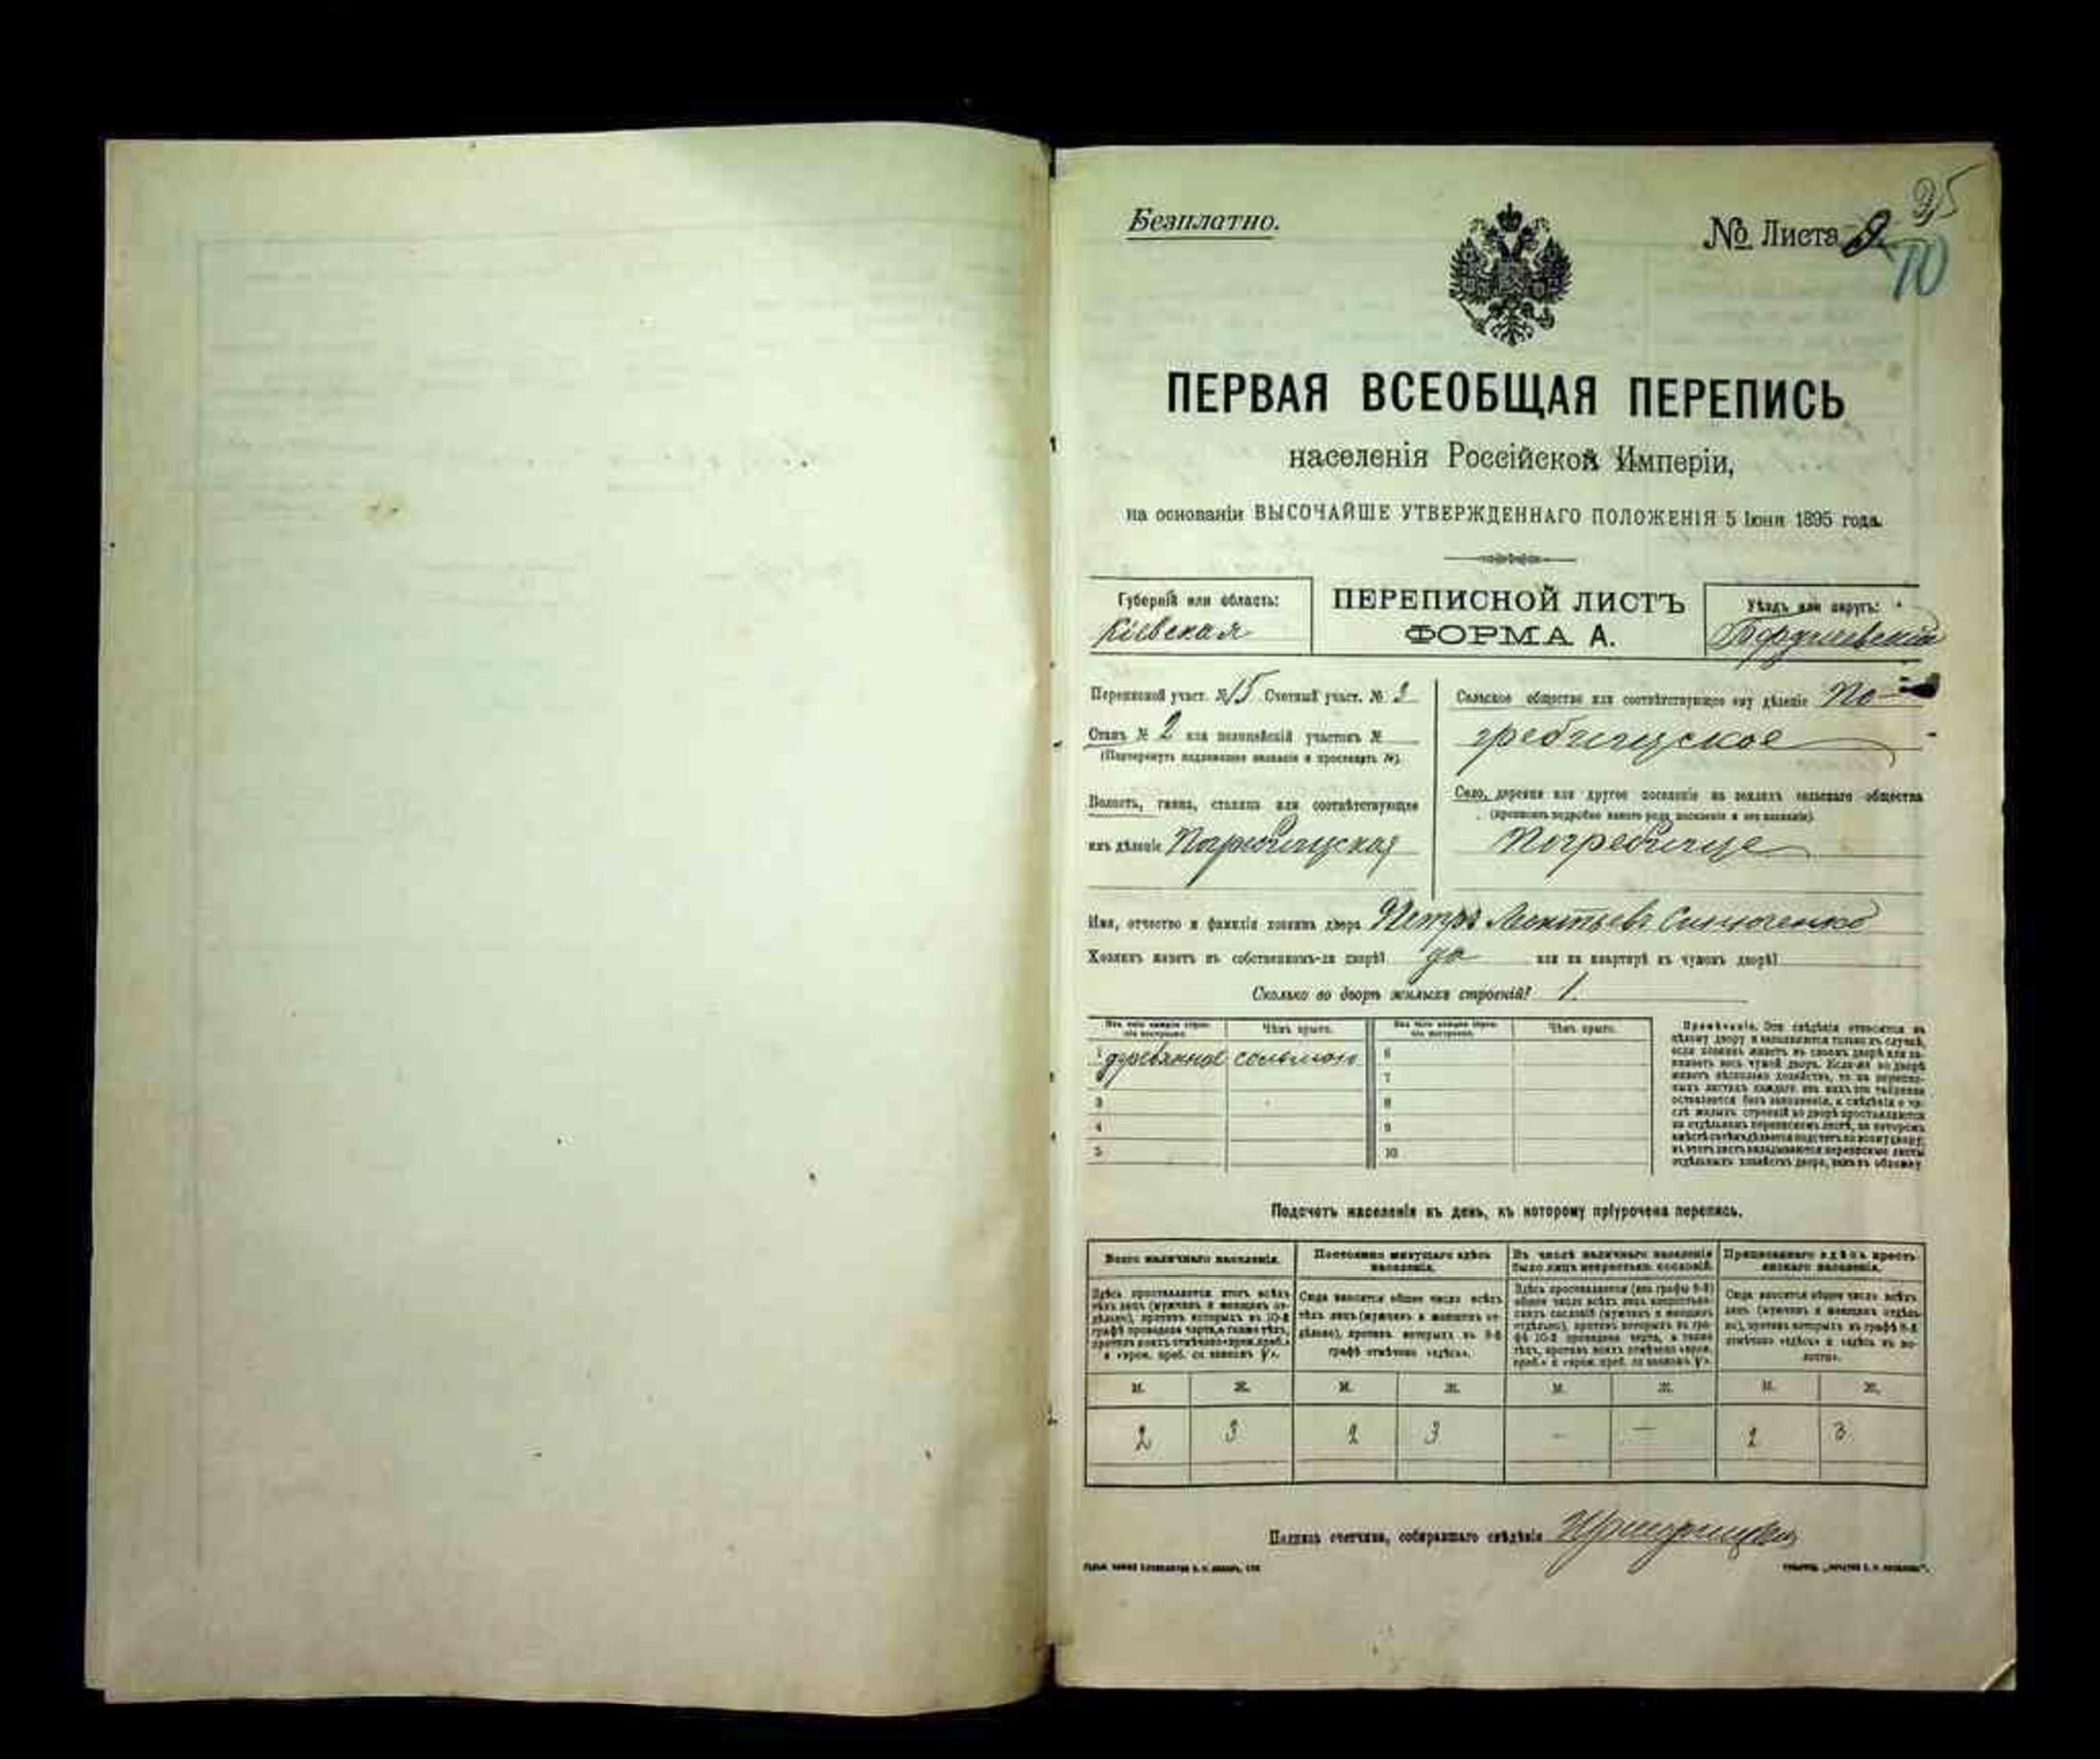 Безплатно.
№ Листа
95
10
ПЕРВАЯ ВСЕОБЩАЯ ПЕРЕПИСЬ
населенія Россійской Имперіи,
на основаніи ВЫСОЧАЙШЕ УТВЕРЖДЕННАГО ПОЛОЖЕНІЯ 5 Іюня 1895 года.
Губернія или область:
Кіевская
ПЕРЕПИСНОЙ ЛИСТЪ
ФОРМА А.
Уѣздъ или округъ:
Переписной участ. № 15 Счетный участ. № 3
Станъ № 2 или полицейскій участокъ №
(Подчеркнуть надлежащее названіе и проставить №).
Волость, гмина, станица или соотвѣтствующее
имъ дѣленіе Погребищская
Сельское общество или соотвѣтствующее ему дѣленіе По-
гребищское
Село, деревня или другое поселеніе на земляхъ сельскаго общества
(прописать подробно какого рода поселеніе и его названіе).
Погребище
Имя, отчество и фамилія хозяина двора Петръ Леонтьевъ
Хозяинъ живетъ въ собственномъ-ли дворѣ? да или на квартирѣ въ чужомъ дворѣ?
Сколько во дворѣ жилыхъ строеній? 1.
Изъ чего каждое строеніе построено.
Чѣмъ крыто.
Изъ чего каждое строеніе построено.
Чѣмъ крыто.
1 деревянное соломою
6
7
3
8
4
9
5
10
Примѣчаніе. Эти свѣдѣнія относятся къ
цѣлому двору и заполняются только въ случаѣ,
если хозяинъ живетъ въ своемъ дворѣ или за-
нимаетъ весь чужой дворъ. Если-же во дворѣ
живетъ нѣсколько хозяйствъ, то на перепис-
ныхъ листахъ каждаго изъ нихъ эта табличка
оставляется безъ заполненія, а свѣдѣнія о чи-
слѣ жилыхъ строеній во дворѣ проставляются
на отдѣльномъ переписномъ листѣ, на которомъ
Подсчетъ населенія въ день, къ которому пріурочена перепись.
Всего наличнаго населенія.
Постоянно живущаго здѣсь
населенія.
Въ числѣ наличнаго населенія
было лицъ некрестьян. сословій.
Приписаннаго здѣсь кресть-
янскаго населенія.
Здѣсь проставляется итогъ всѣхъ
тѣхъ лицъ (мужчинъ и женщинъ от-
дѣльно), противъ которыхъ въ 10-й
графѣ проведена черта, а также тѣхъ,
противъ коихъ отмѣчено «врем. преб.»
Сюда вносится общее число всѣхъ
тѣхъ лицъ (мужчинъ и женщинъ от-
дѣльно), противъ которыхъ въ 9-й
графѣ отмѣчено «здѣсь».
Сюда вносится общее число всѣхъ
лицъ (мужчинъ и женщинъ отдѣль-
но), противъ которыхъ въ графѣ 8-й
отмѣчено «здѣсь» и «здѣсь въ во-
лости».
М. Ж. М. Ж. М. Ж. М. Ж.
2 3 2 3 — — 2 3
Подпись счетчика, собиравшаго свѣдѣнія